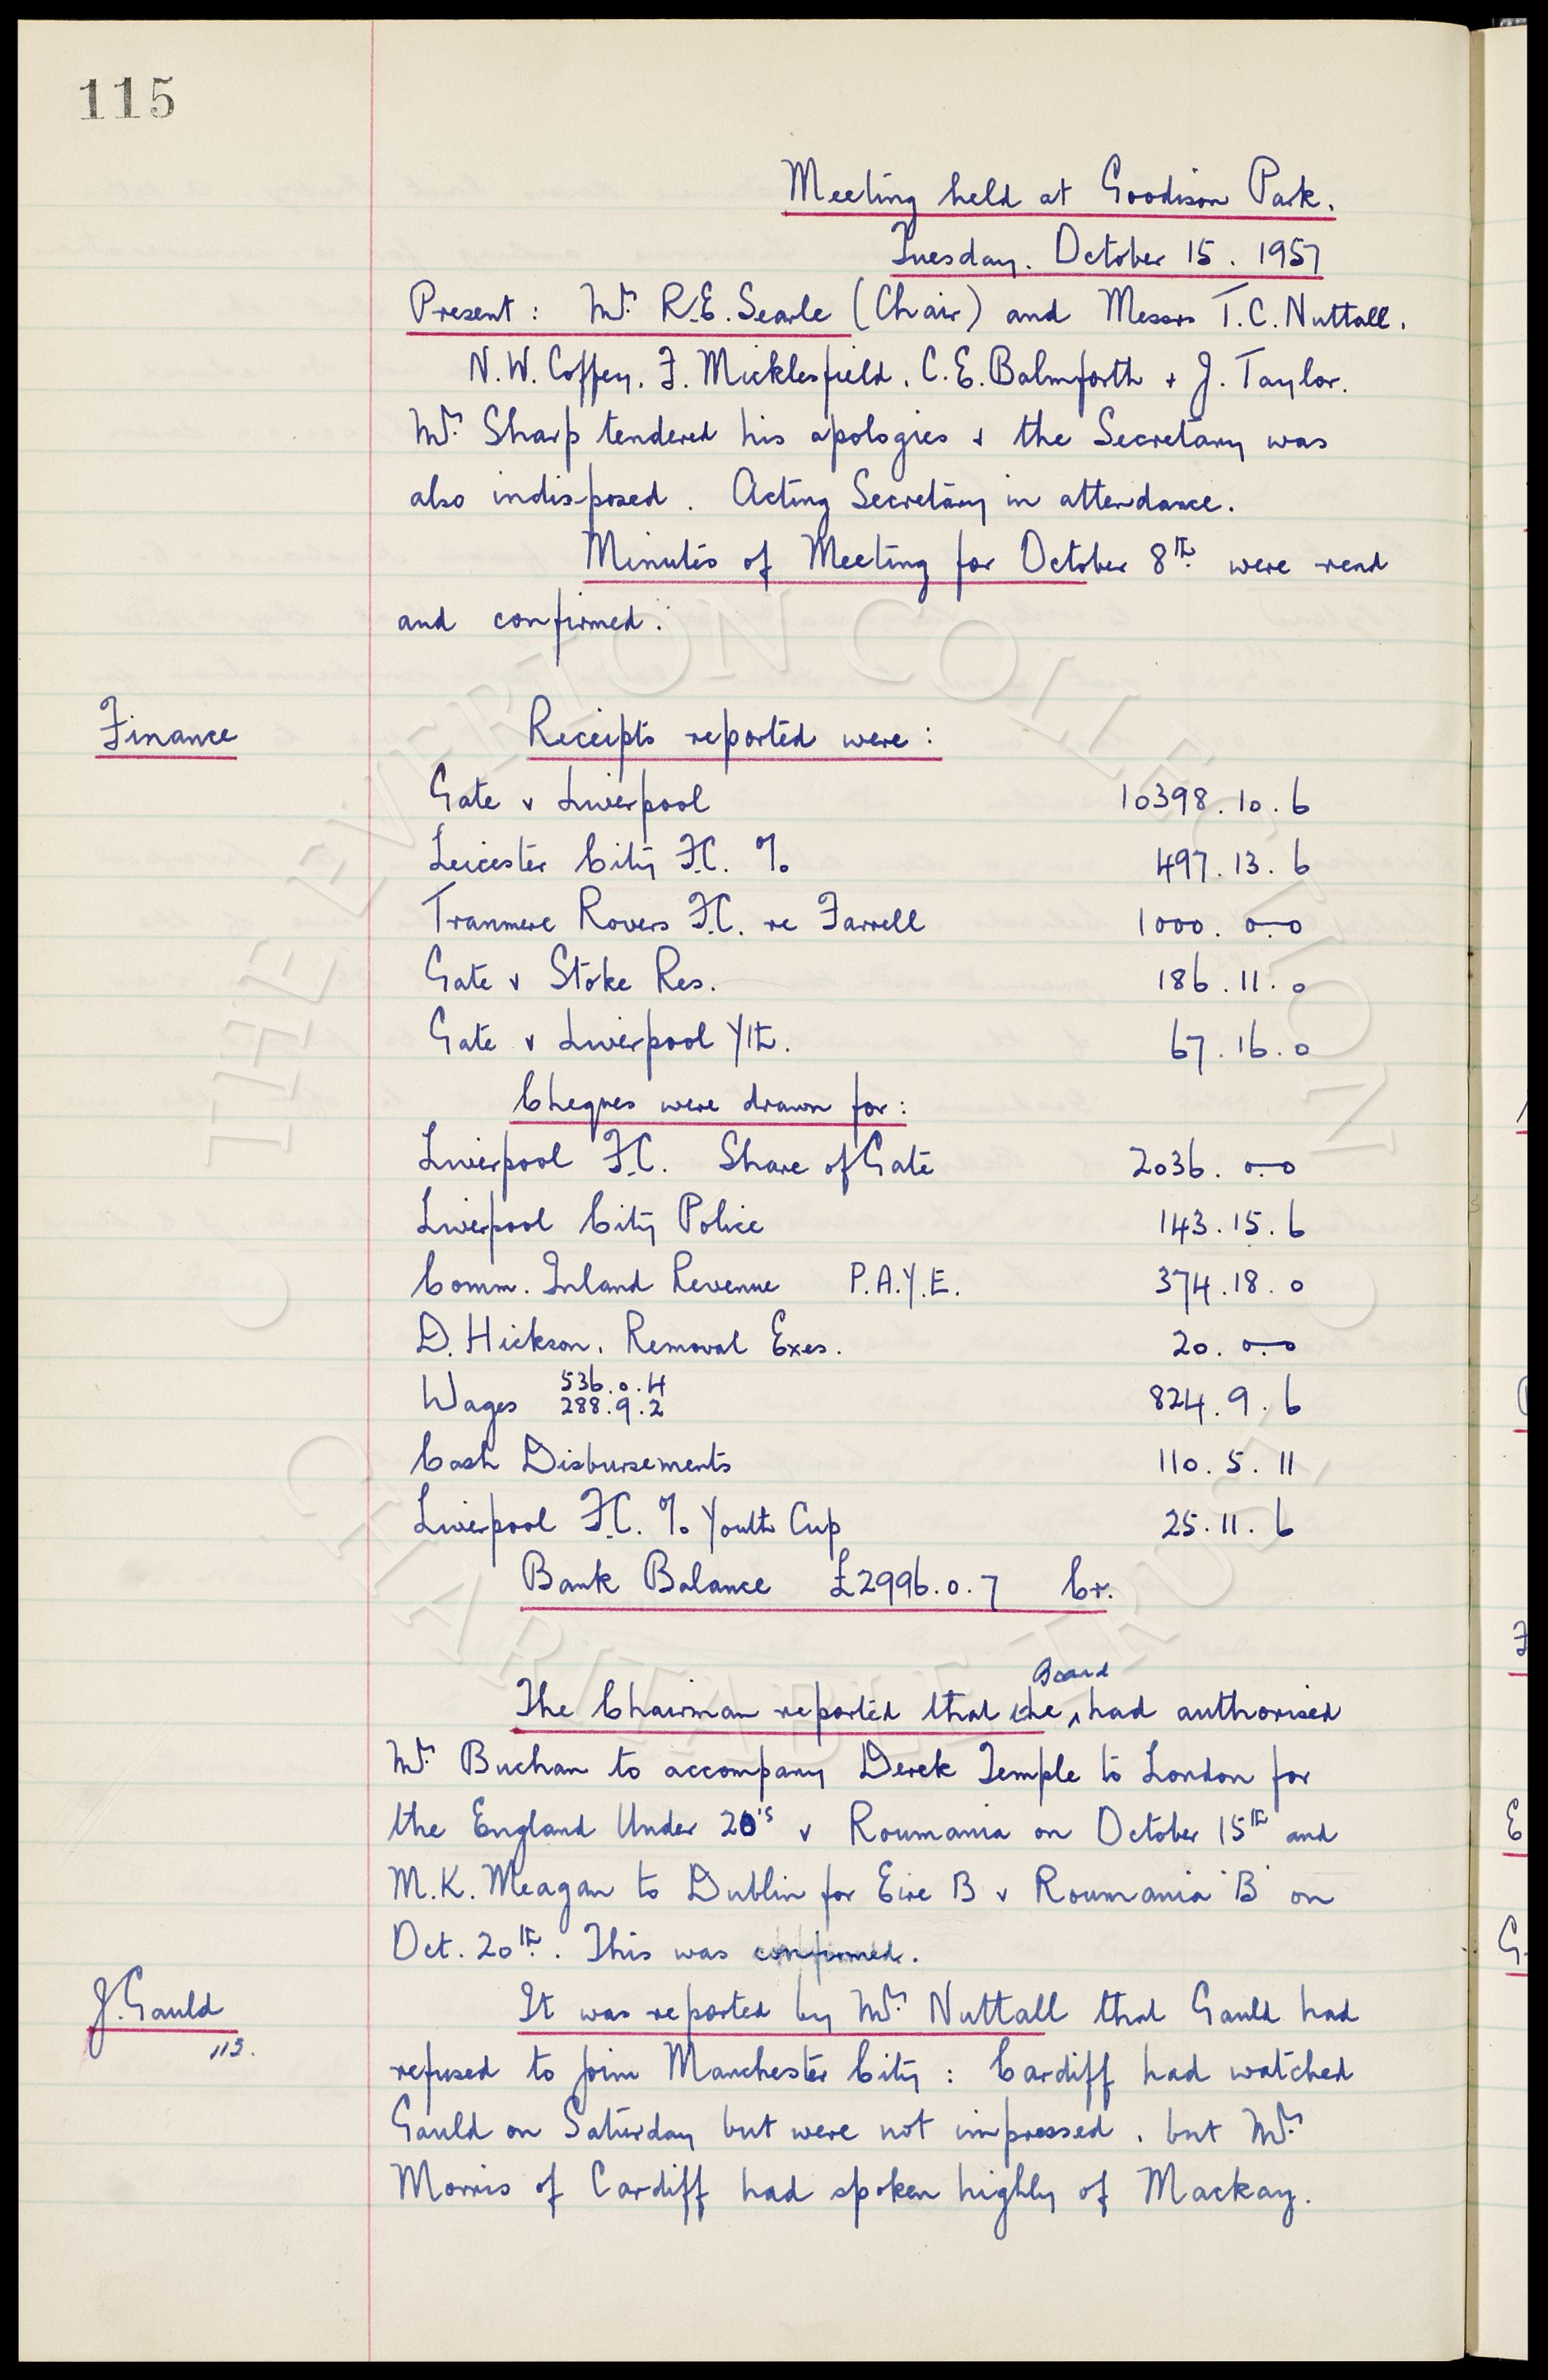 115
Meeting held at Goodison Park.
Tuesday. October 15. 1957
Present: Mr. R.E. Searle (Chair) and Messrs T.C. Nuttall.
N.W. Coffey. F. Micklesfield. C.E. Balmforth + J. Taylor.
Mr. Sharp tendered his apologies + the Secretary was
also indisposed. Acting Secretary in attendance.
Minutes of Meeting for October 8th were read
and confirmed.
Finance
Receipts reported were:
Gate v Liverpool 10398.10.6
Leicester City F.C. % 497.13.6
Tranmere Rovers F.C. re Farrell 1000.0.0
Gate v Stoke Res. 186.11.0
Gate v Liverpool Yth. 67.16.0
Cheques were drawn for:
Liverpool F.C. Share of Gate 2036.0.0
Liverpool City Police 143.15.6
Comm. Inland Revenue P.A.Y.E. 374.18.0
D. Hickson. Removal Exes. 20.0.0
Wages 536.0.4 824.9.6
288.9.2
Cash Disbursements 110.5.11
Liverpool F.C. % Youth Cup 25.11.6
Bank Balance £2996.0.7 Cr.
Board
The Chairman reported that the ^ had authorised
Mr. Buchan to accompany Derek Temple to London for
the England Under 20's v Roumania on October 15th and
M.K. Meagan to Dublin for Eire B v Roumania 'B' on
Oct. 20th. This was confirmed.
J. Gauld
113.
It was reported by Mr. Nuttall that Gauld had
refused to join Manchester City: Cardiff had watched
Gauld on Saturday but were not impressed, but Mr.
Morris of Cardiff had spoken highly of Mackay.
THE EVERTON COLLECTION
CHARITABLE TRUST